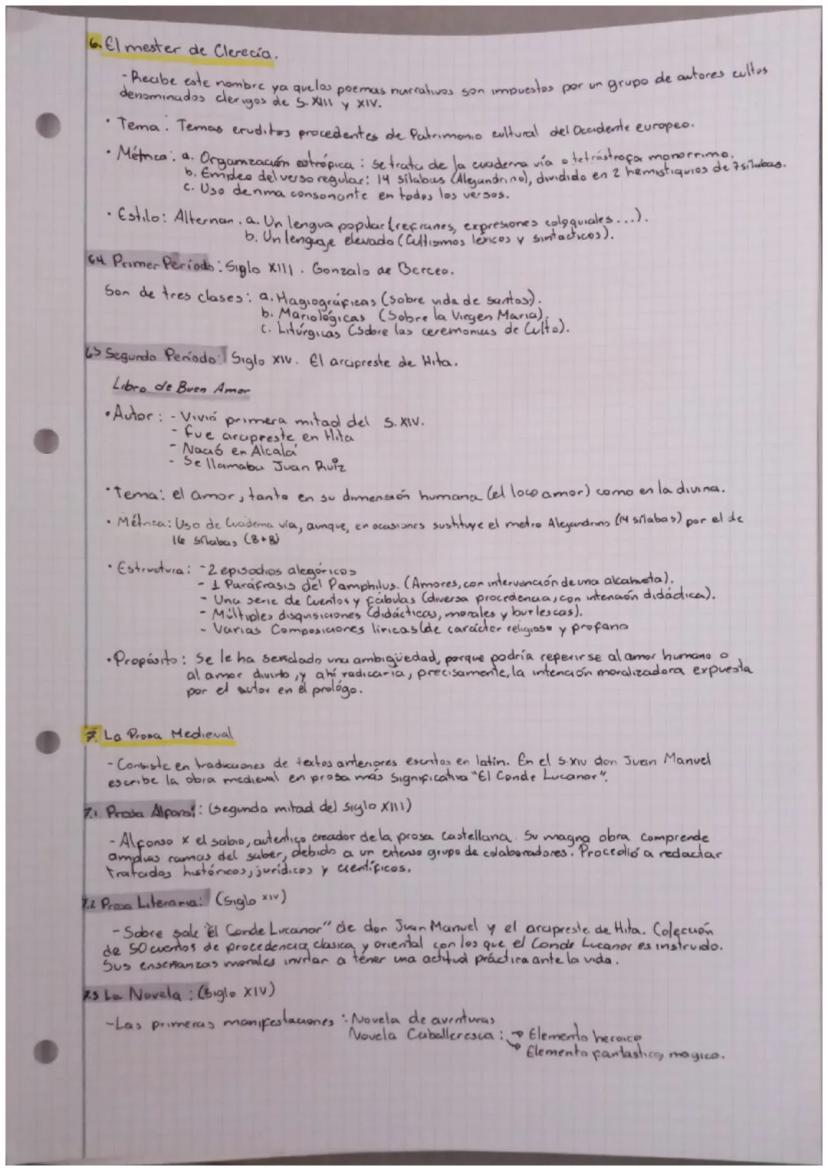 6. El mester de Clerecía.
- Recibe este nombre ya que los poemas narrativos son impuestos por un grupo de autores cultos
denominados clerigos de S. XIII y XIV.
· Tema: Temas eruditos procedentes de Patrimonio cultural del Occidente europeo.
· Métrica: a. Organización estrópica: se trata de la cuaderna vía o tetrástrofa monorrimo.
b. Empleo del verso regular: 14 sílabas (Alejandrino), dividido en 2 hemistiquios de 7 sílabas.
c. Uso de rima consonante en todos los versos.
· Estilo: Alternan. a. Un lengua popular (refranes, expresiones coloquiales...).
b. Un lenguaje elevado (Cultismos léxicos y sintacticos).
Primer Período: Siglo XIII. Gonzalo de Berceo.
Son de tres clases: a. Hagiográficas (sobre vida de santos).
b. Mariológicas (Sobre la Virgen María).
c. Litúrgicas (Sobre las ceremonias de Culto).
Segundo Período: Siglo XIV. El arcipreste de Hita.
Libro de Buen Amor
· Autor: - Vivió primera mitad del S. XIV.
- fue arcipreste en Hita
- Nació en Alcalá
- Se llamaba Juan Ruiz
· Tema: el amor, tanto en su dimensión humana (el loco amor) como en la divina.
· Métrica: Uso de Cuaderna vía, aunque, en ocasiones sustituye el metro Alejandrino (14 sílabas) por el de
16 sílabas (8+8)
· Estructura: - 2 episodios alegóricos
- 1 Paráfrasis del Pamphilus. (Amores, con intervención de una alcahueta).
- Una serie de Cuentos y fábulas (diversa procedencia, con intención didáctica).
- Múltiples disquisiciones (didácticas, morales y burlescas).
- Varias Composiciones líricas (de carácter religioso y profano
· Propósito: Se le ha señalado una ambigüedad, porque podría referirse al amor humano o
al amor divino, y ahí radicaría, precisamente, la intención moralizadora expuesta
por el autor en el prólogo.
7. La Prosa Medieval
- Consiste en traducciones de textos anteriores escritos en latín. En el S. XIV don Juan Manuel
escribe la obra medieval en prosa más significativa "El Conde Lucanor".
7.1 Prosa Alfonsí: (segunda mitad del siglo XIII)
- Alfonso X el sabio, autentico creador de la prosa castellana. Su magna obra comprende
amplias ramas del saber, debido a un extenso grupo de colaboradores. Procedió a redactar
tratados históricos, jurídicos y científicos.
7.2 Prosa Literaria: (Siglo XIV)
- Sobre sale "el Conde Lucanor" de don Juan Manuel y el arcipreste de Hita. Colección
de 50 cuentos de procedencia clasica y oriental con los que el Conde Lucanor es instruido.
Sus enseñanzas morales invitan a tener una actitud práctica ante la vida.
7.3 La Novela: (Siglo XIV)
- Las primeras manifestaciones: Novela de aventuras
Novela Caballeresca: → Elemento heroico
→ Elemento fantastico, magico.